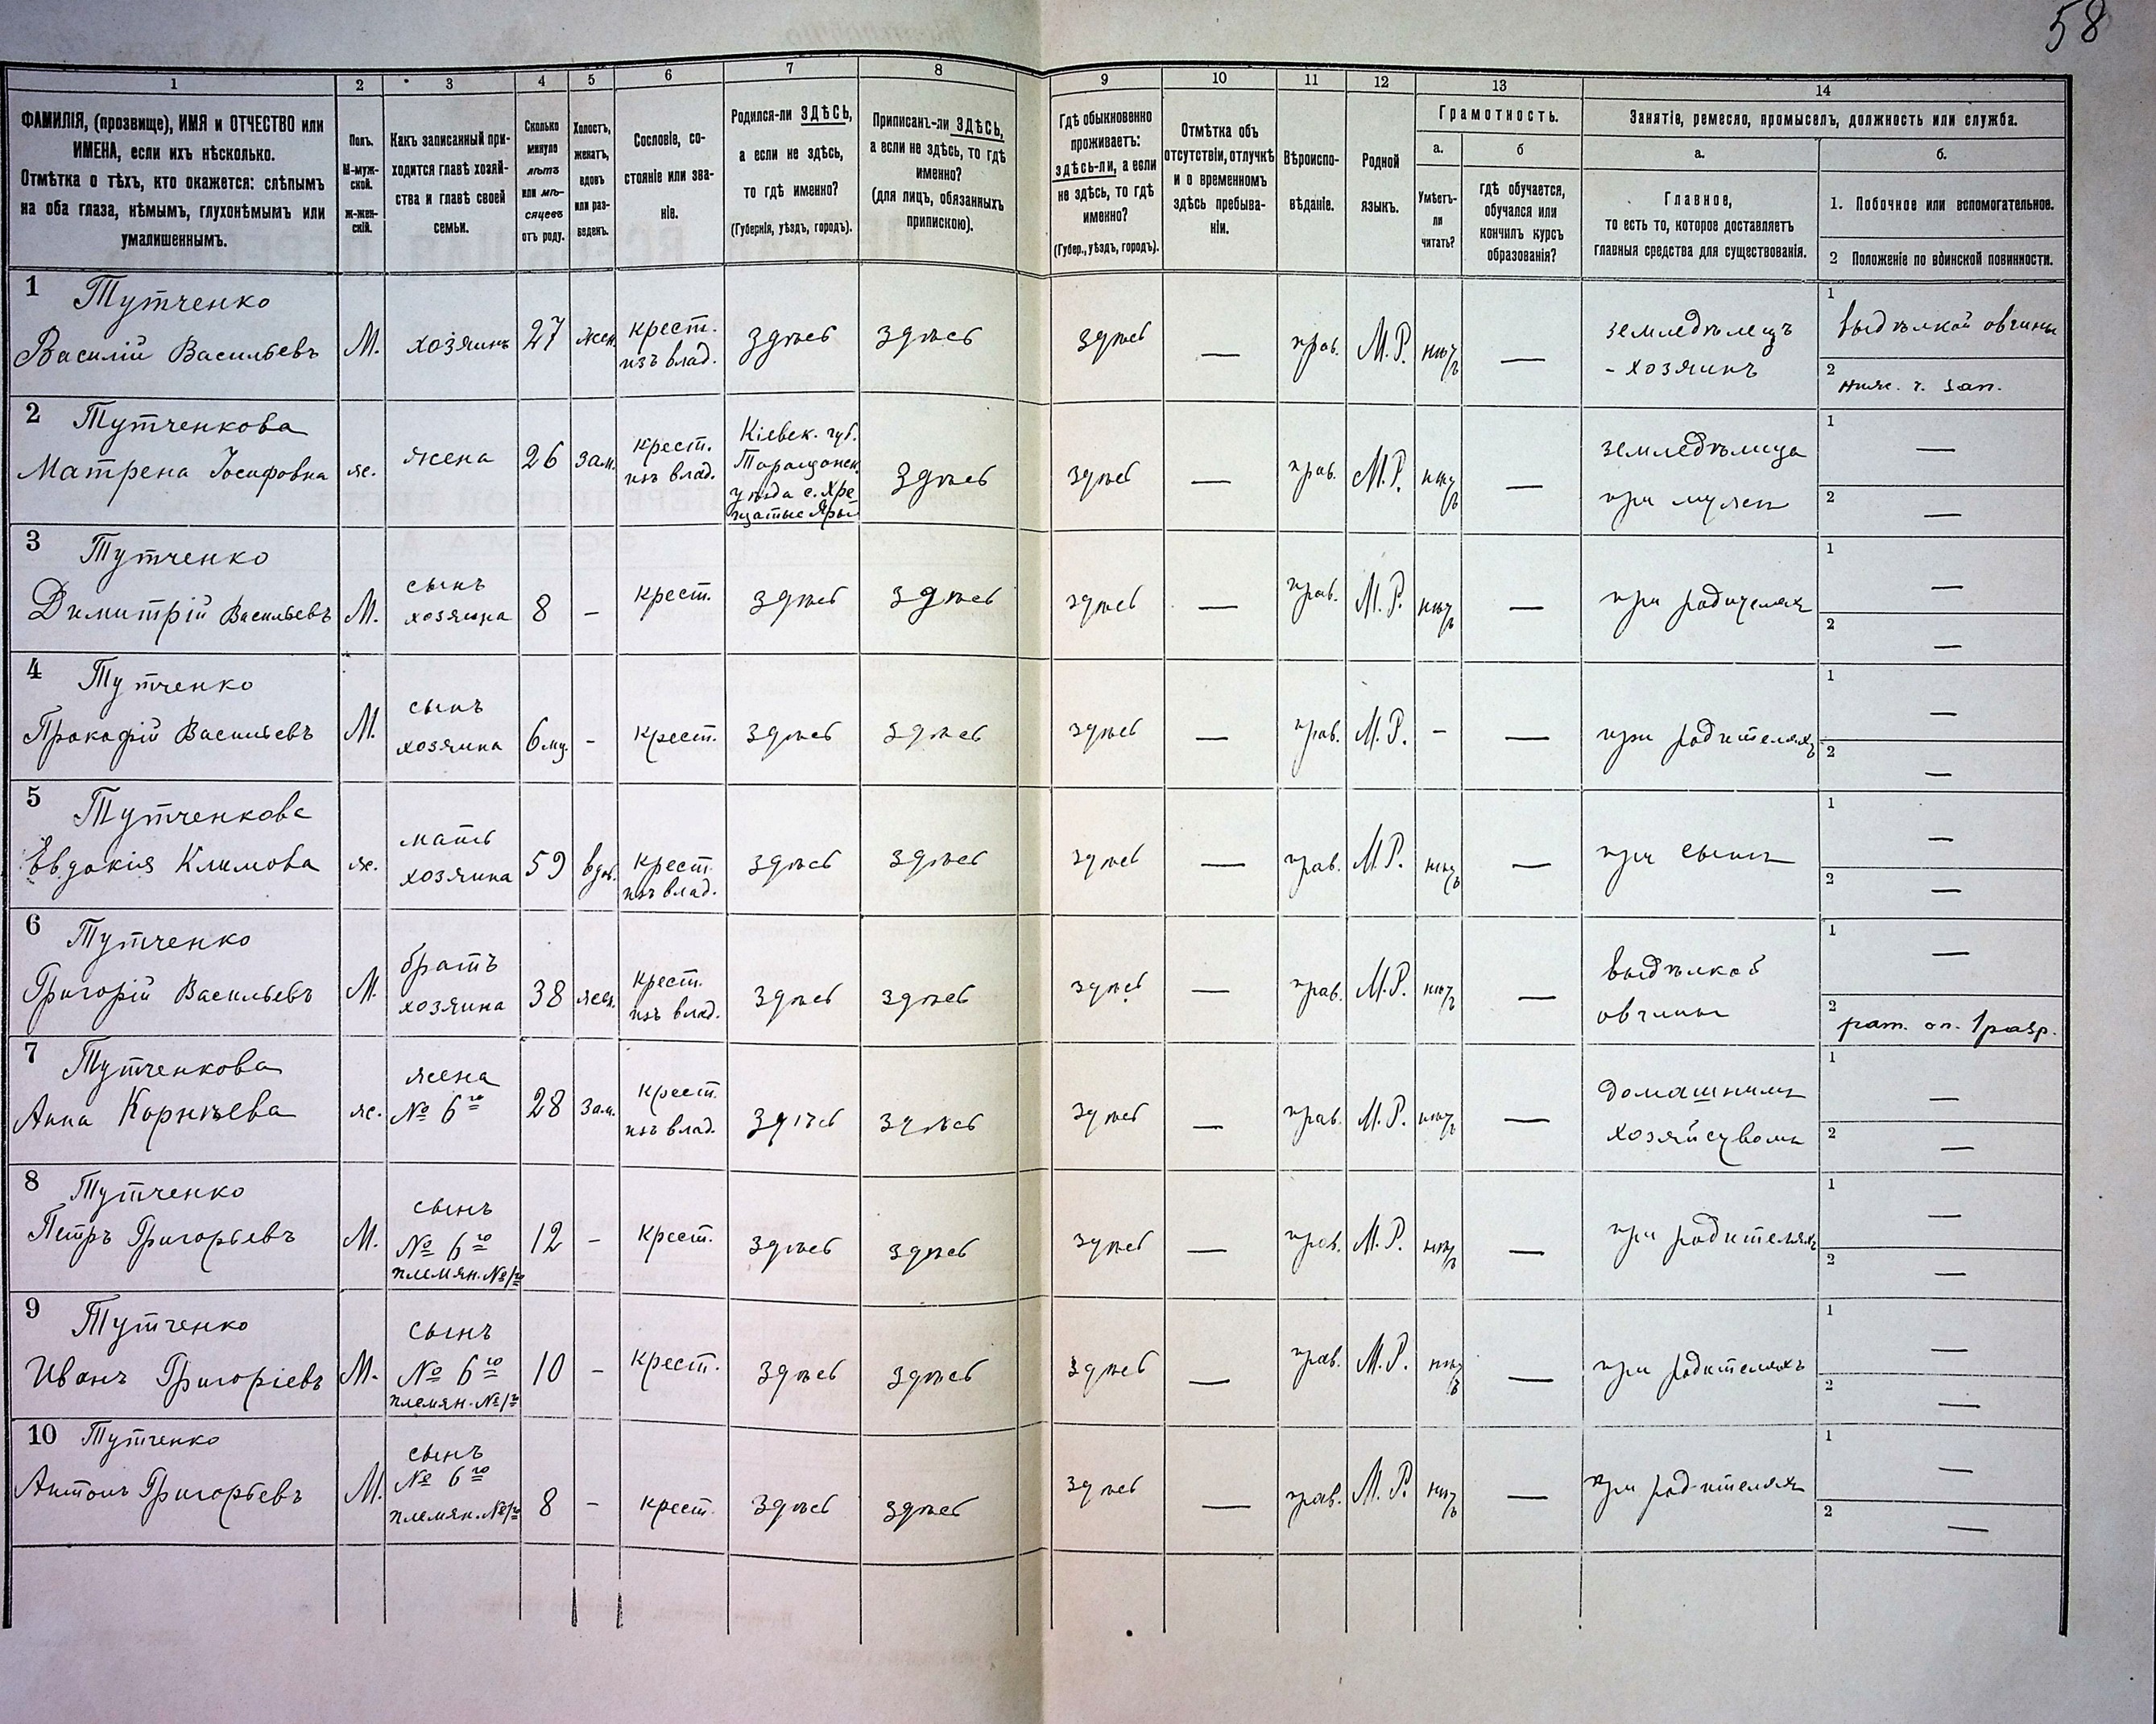 58
1 2 3 4 5 6 7 8 9 10 11 12 13 14
ФАМИЛІЯ, (прозвище), ИМЯ и ОТЧЕСТВО или
ИМЕНА, если ихъ нѣсколько.
Отмѣтка о тѣхъ, кто окажется: слѣпымъ
на оба глаза, нѣмымъ, глухонѣмымъ или
умалишеннымъ.
Полъ.
М-муж-
ской.
Ж-жен-
скій.
Какъ записанный при-
ходится главѣ хозяй-
ства и главѣ своей
семьи.
Сколько
минуло
лѣтъ
или мѣ-
сяцевъ
отъ роду.
Холостъ,
женатъ,
вдовъ
или раз-
веденъ.
Сословіе, со-
стояніе или зва-
ніе.
Родился-ли ЗДѢСЬ,
а если не здѣсь,
то гдѣ именно?
(Губернія, уѣздъ, городъ).
Приписанъ-ли ЗДѢСЬ,
а если не здѣсь, то гдѣ
именно?
(для лицъ, обязанныхъ
припискою).
Гдѣ обыкновенно
проживаетъ:
здѣсь-ли, а если
не здѣсь, то гдѣ
именно?
(Губер., уѣздъ, городъ).
Отмѣтка объ
отсутствіи, отлучкѣ
и о временномъ
здѣсь пребыва-
ніи.
Вѣроиспо-
вѣданіе.
Родной
языкъ.
Грамотность.
а.
Умѣетъ-
ли
читать?
б
гдѣ обучается,
обучался или
кончилъ курсъ
образованія?
Занятіе, ремесло, промыселъ, должность или служба.
а.
Главное,
то есть то, которое доставляетъ
главныя средства для существованія.
б.
1. Побочное или вспомогательное.
2 Положеніе по воинской повинности.
1 Тутченко
Василій Васильевъ М. хозяинъ 27 жен. крест. изъ влад. здѣсь здѣсь здѣсь — прав. М.Р. нѣтъ — земледѣлецъ - хозяинъ 1 выдѣлкой овчины
2 ниж. ч. зап.
2 Тутченкова
Матрена Іосифовна ж. жена 26 зам. крест. изъ влад. Кіевск. губ. Таращанск. уѣзда с. Хре щатые Яры здѣсь здѣсь — прав. М.Р. нѣтъ — земледѣлица при мужѣ 1 —
2 —
3 Тутченко
Димитрій Васильевъ М. сынъ хозяина 8 - крест. здѣсь здѣсь здѣсь — прав. М.Р. нѣтъ — при родителяхъ 1 —
2 —
4 Тутченко
Прокофій Васильевъ М. сынъ хозяина 6 мц. - крест. здѣсь здѣсь здѣсь — прав. М.Р. - — при родителяхъ 1 —
2 —
5 Тутченкова
Евдокія Климова ж. мать хозяина 59 вдов. крест. изъ влад. здѣсь здѣсь здѣсь — прав. М.Р. нѣтъ — при сынѣ 1 —
2 —
6 Тутченко
Григорій Васильевъ М. братъ хозяина 38 жен. крест. изъ влад. здѣсь здѣсь здѣсь — прав. М.Р. нѣтъ — выдѣлкой овчины 1 —
2 рат. оп. 1 разр.
7 Тутченкова
Анна Корнѣева ж. жена № 6го 28 зам. крест. изъ влад. здѣсь здѣсь здѣсь — прав. М.Р. нѣтъ — домашнимъ хозяйствомъ 1 —
2 —
8 Тутченко
Петръ Григорьевъ М. сынъ № 6го племян. № 1го 12 - крест. здѣсь здѣсь здѣсь — прав. М.Р. нѣтъ — при родителяхъ 1 —
2 —
9 Тутченко
Иванъ Григоріевъ М. сынъ № 6го племян. № 1го 10 - крест. здѣсь здѣсь здѣсь — прав. М.Р. нѣтъ — при родителяхъ 1 —
2 —
10 Тутченко
Антонъ Григорьевъ М. сынъ № 6го племян. № 1го 8 - крест. здѣсь здѣсь здѣсь — прав. М.Р. нѣтъ — при родителяхъ 1 —
2 —